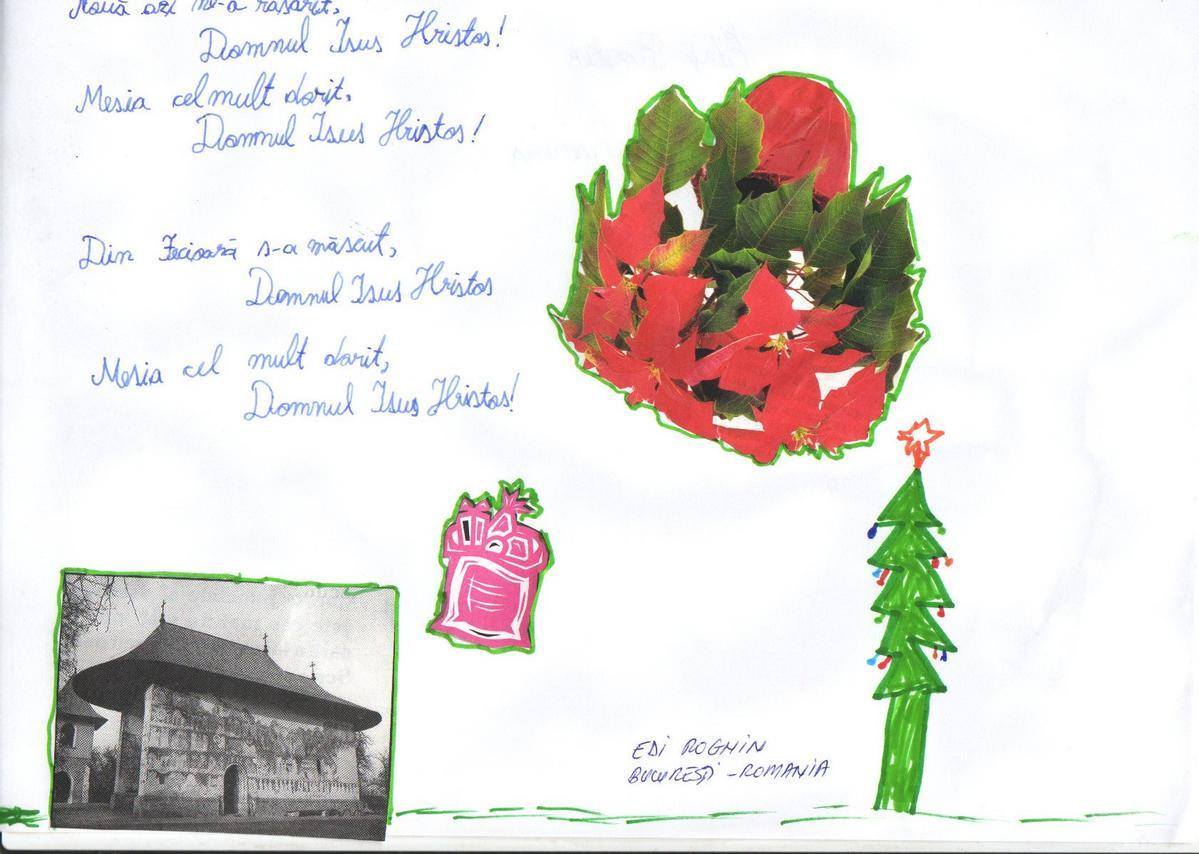 Nouă azi ne-a răsărit,
Domnul Isus Hristos!
Mesia cel mult dorit,
Domnul Isus Hristos!
Din Fecioară s-a născut,
Domnul Isus Hristos
Mesia cel mult dorit,
Domnul Isus Hristos!
EDI ROGHIN
BUCUREȘTI - ROMANIA